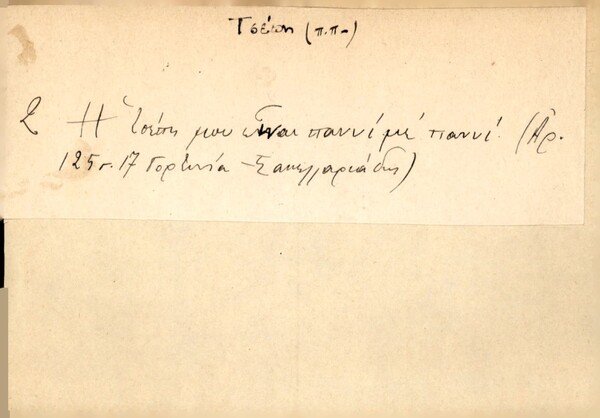 Τσέπη (π.π.)
2 Η τσέπη μου είναι παννί με παννί. (Αρ.
125 σ. 17 Γορτυνία - Σακελλαριάδης)